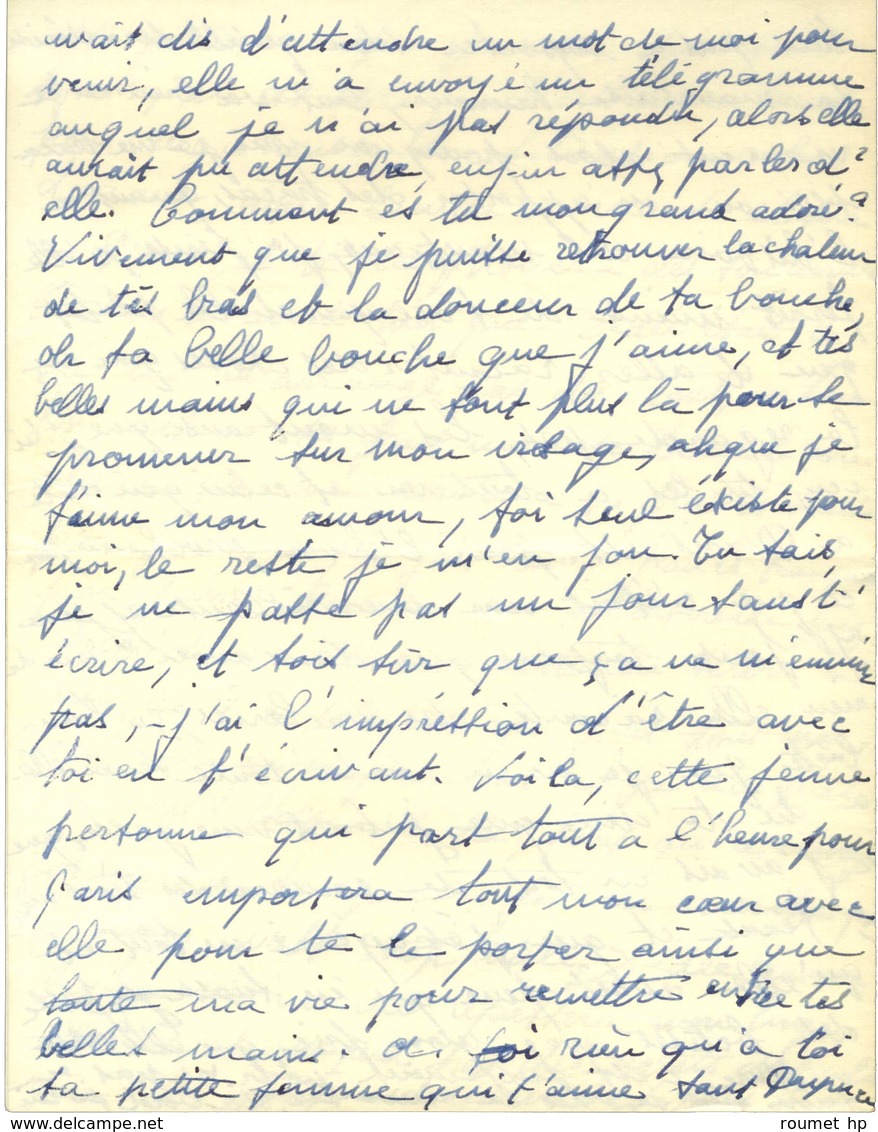 avais dis d'attendre un mot de moi pour
venir, elle m'a envoyé un télégramme
auquel je n'ai pas répondu, alors elle
aurait pu attendre, enfin assez parler d'
elle. Comment es tu mon grand adoré?
Vivement que je puisse retrouver la chaleur
de tes bras et la douceur de ta bouche,
oh ta belle bouche que j'aime, et tes
belles mains qui ne sont plus là pour se
promener sur mon visage, ah que je
t'aime mon amour, toi seul éxiste pour
moi, le reste je m'en fou. Tu sais,
je ne passe pas un jour sans t'
écrire, et sois sûr que ça ne m'ennuie
pas, - j'ai l'impréssion d'être avec
toi en t'écrivant. Voila, cette jeune
personne qui part tout a l'heure pour
Paris emportera tout mon cœur avec
elle pour te le porter ainsi que
toute ma vie pour remettre entre tes
belles mains. a toi rien qu'a toi
ta petite femme qui t'aime tant
roumet hp